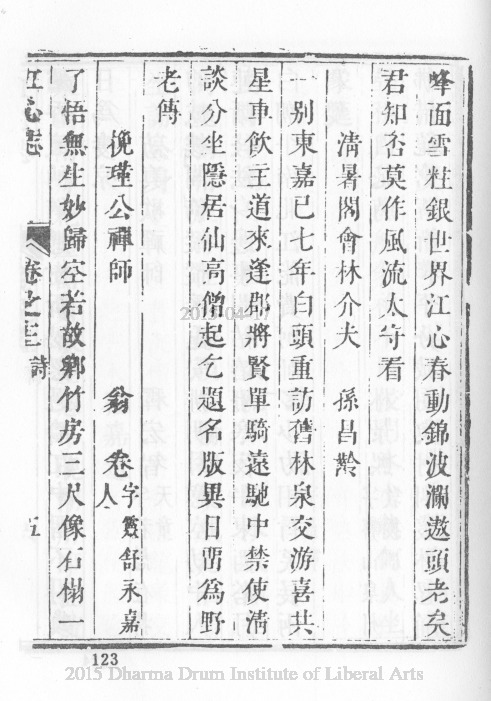 峰面雪柱銀世界江心春動錦波瀾遨頭老矣
君知否莫作風流太守看
清暑閣會林介夫　孫昌齡
一别東嘉已七年白頭重訪舊林泉交游喜共
星車飲主道來逢郡將賢單騎遠馳中禁使淸
談分坐隱居仙高僧起乞題名版異日畱爲野
老傳
挽瑾公禪師　翁卷字靈舒永嘉人
了悟無生妙歸空若故鄕竹房三尺像石榻一
江心志　卷之三　詩　五
123
2015-04-17
2015 Dharma Drum Institute of Liberal Arts